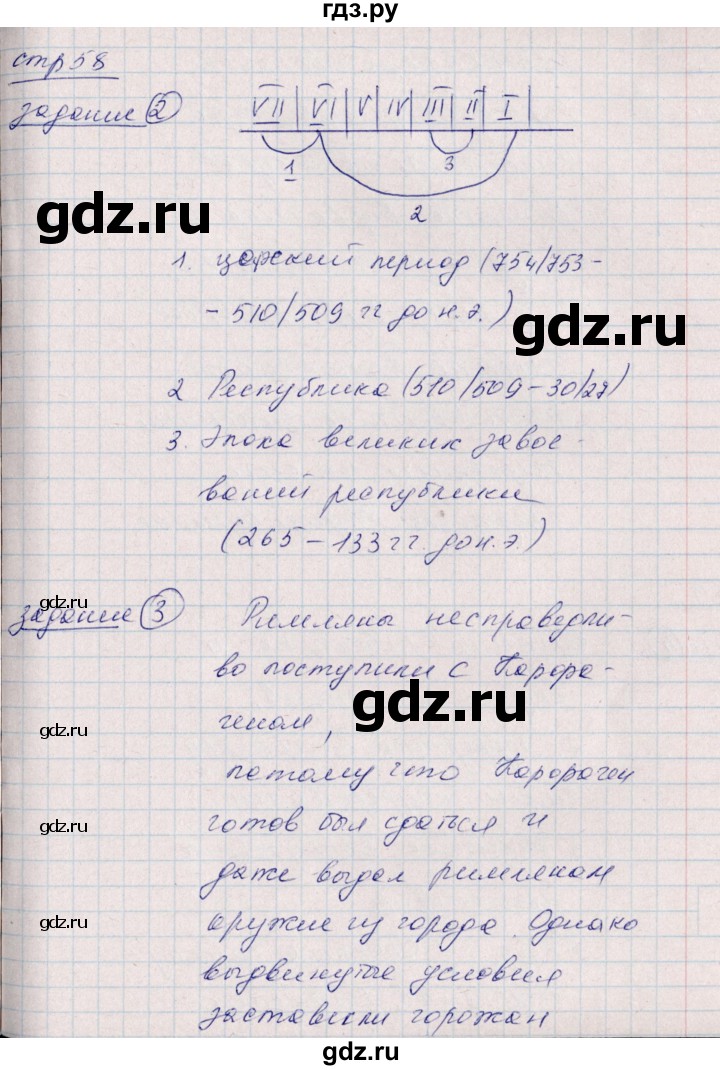 гдз.ру
стр 58
задание 2
VII | VI | V | IV | III | II | I |
1
3
2
gdz.ru
1. царский период (754/753-
- 510/509 гг до н.э.)
gdz.ru
2 Республика (510/509-30/27)
3. Эпоха великих завое-
ваний республики
(265-133 гг. до н.э.)
gdz.ru
задание 3 Римляне несправедли-
во поступили с Карфа-
геном,
gdz.ru
gdz.ru
потому что Карфаген
готов был сдаться и
gdz.ru
даже выдал римлянам
оружие из города. Однако
gdz.ru
выдвинутые условия
заставили горожан
gdz.ru